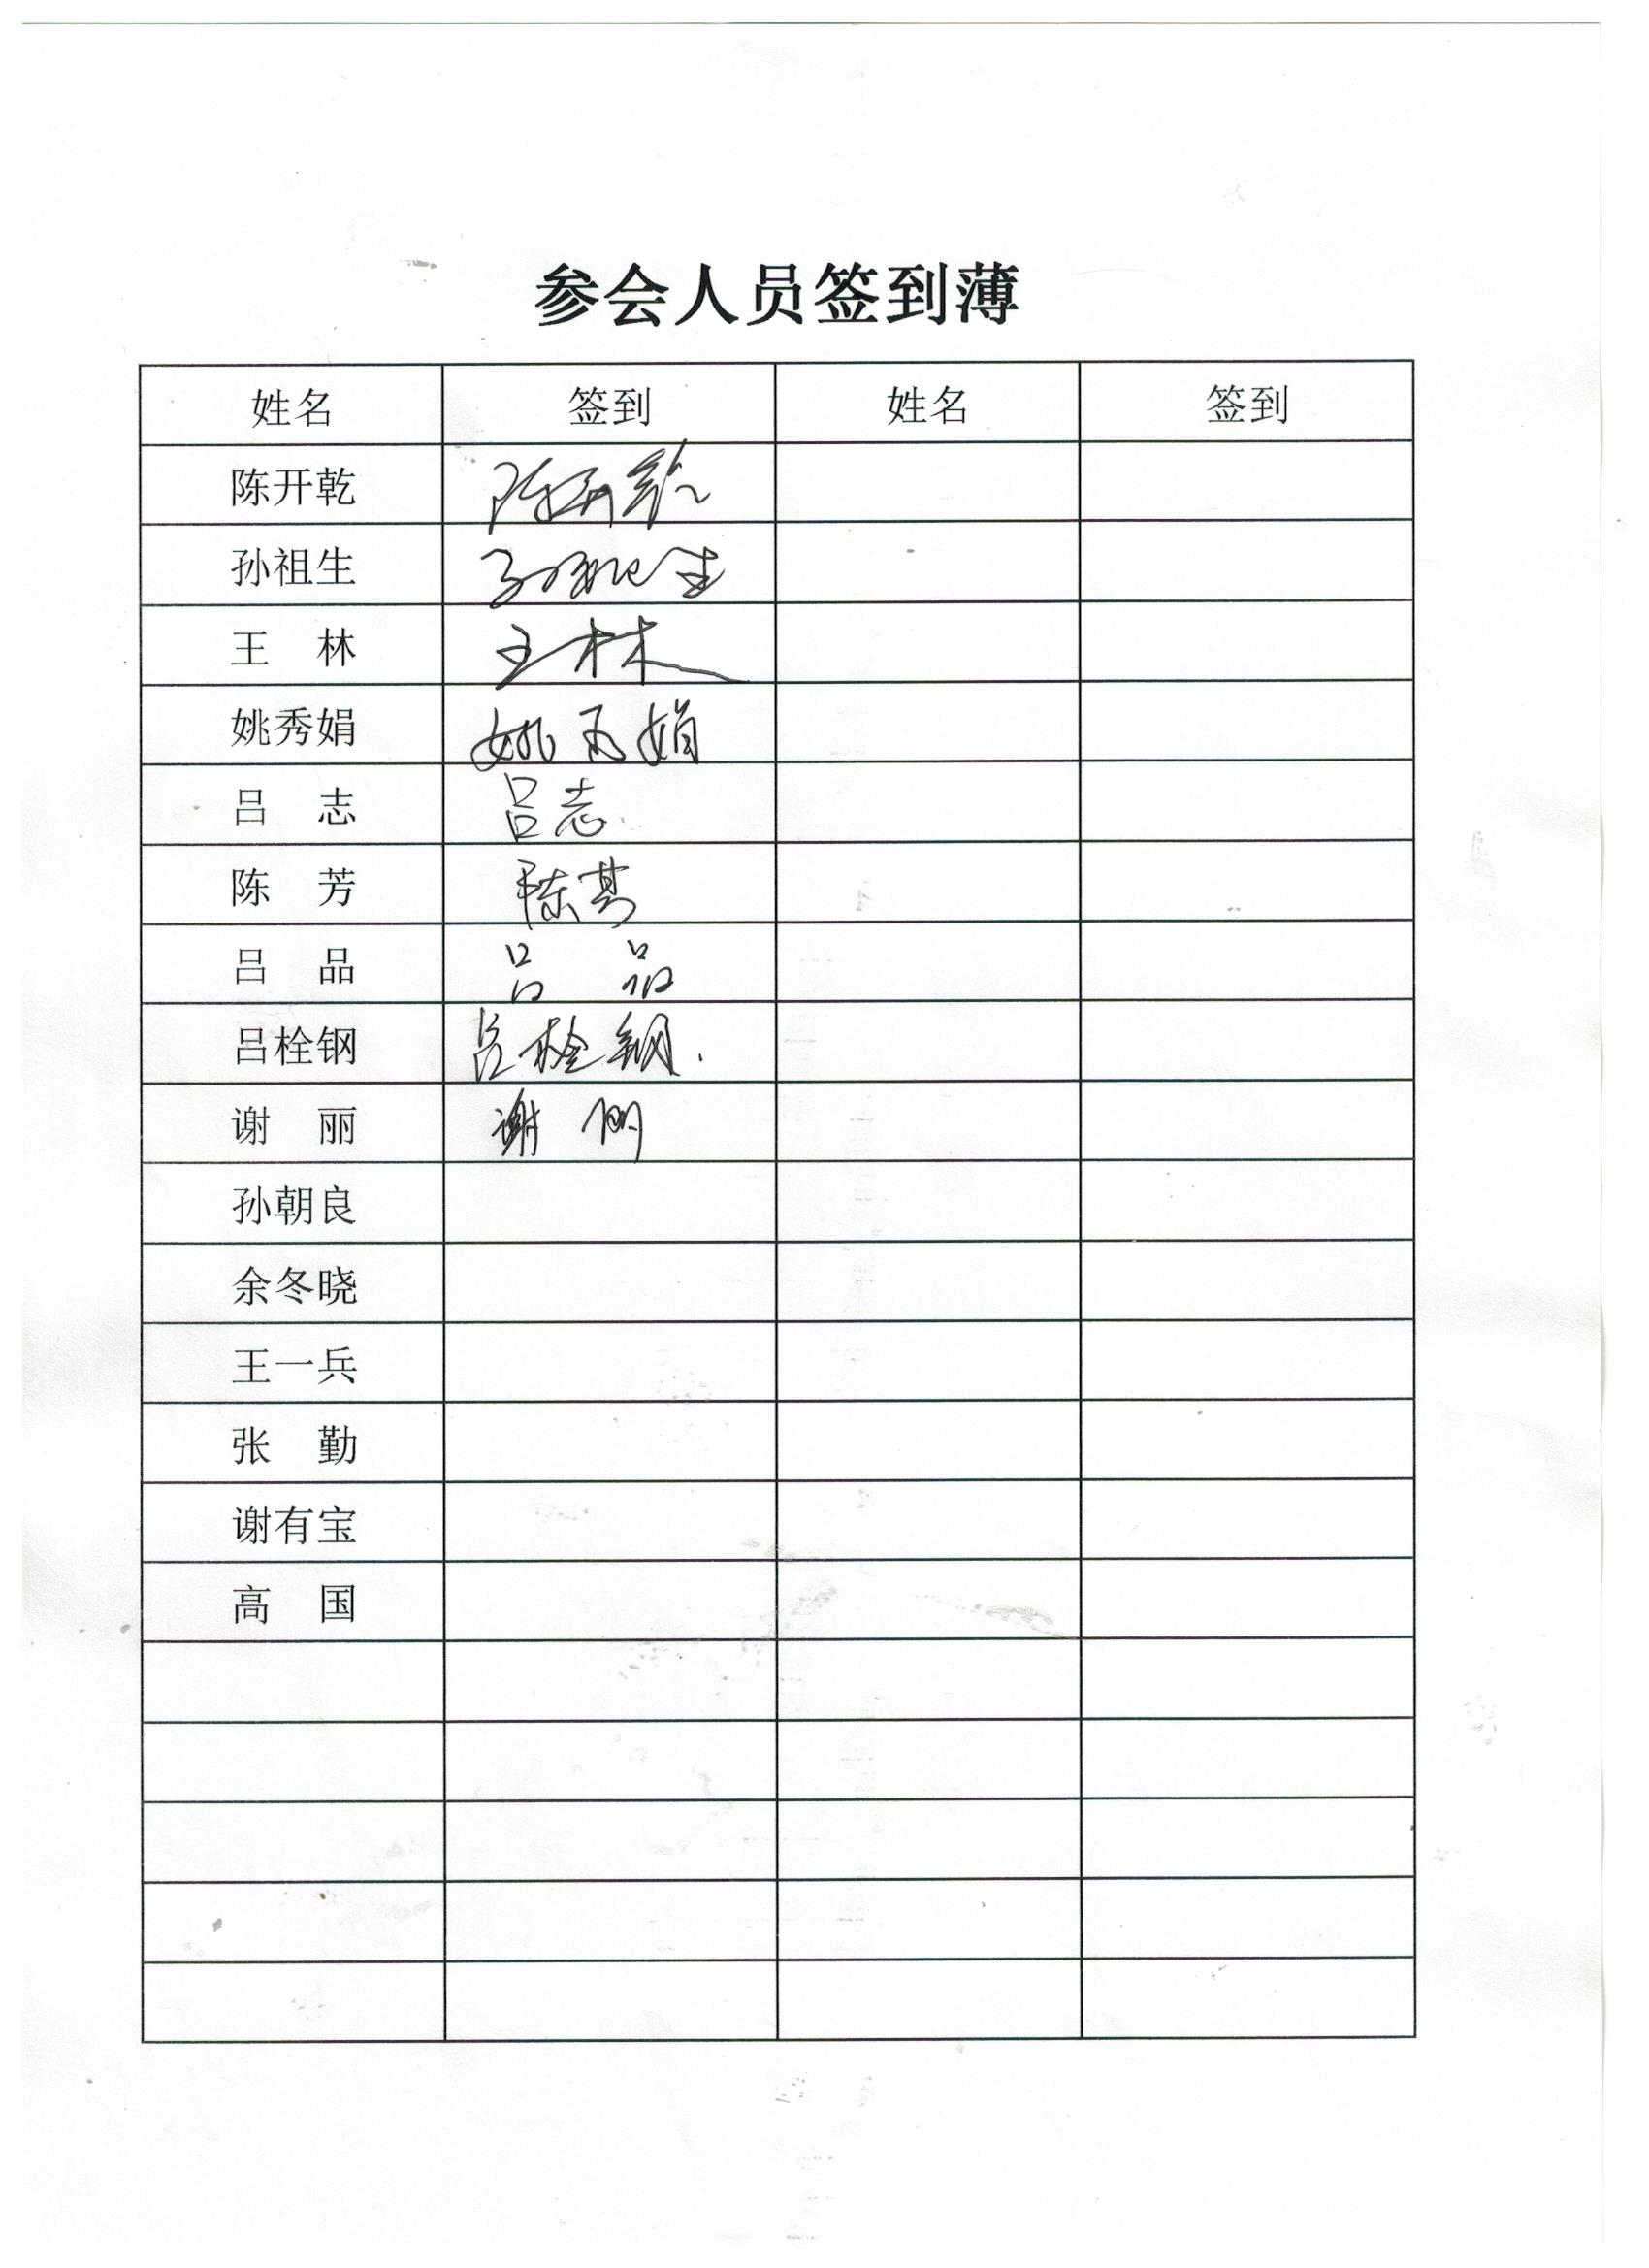 参会人员签到薄
姓名 签到 姓名 签到
陈开乾 陈开乾
孙祖生 孙祖生
王 林 王林
姚秀娟 姚秀娟
吕 志 吕志
陈 芳 陈芳
吕 品 吕 品
吕栓钢 吕栓钢.
谢 丽 谢 丽
孙朝良
余冬晓
王一兵
张 勤
谢有宝
高 国